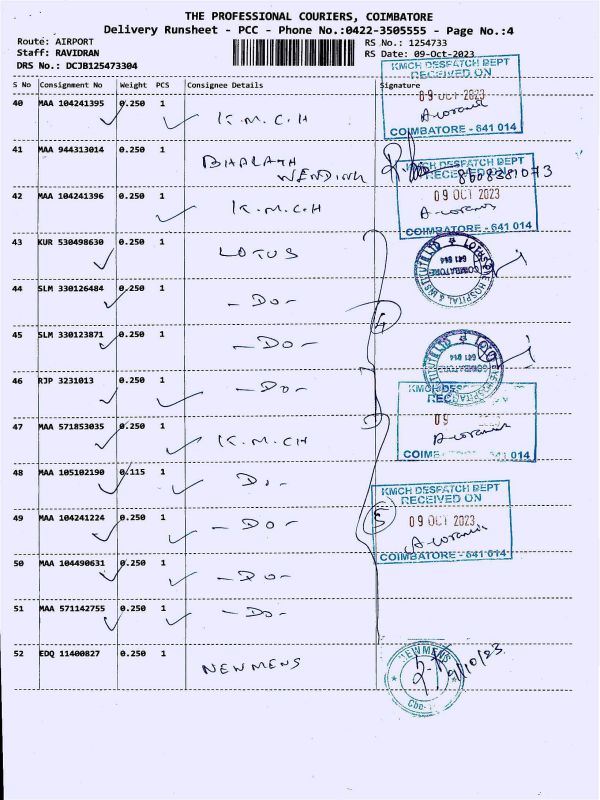 THE PROFESSIONAL COURIERS, COIMBATORE
Delivery Runsheet - PCC - Phone No.:0422-3505555 - Page No.:4
Route: AIRPORT
RS No.: 1254733
Staff: RAVIDRAN
RS Date: 09-Oct-2023
DRS No.: DCJB125473304
S No Consignment No Weight PCS Consignee Details Signature
KMCH DESPATCH DEPT
RECEIVED ON
09 OCT 2023
COIMBATORE - 641 014
40 MAA 104241395 0.250 1 K.M.C.H
41 MAA 944313014 0.250 1 BHARATH
KMCH DESPATCH DEPT
RECEIVED ON
8608381073
09 OCT 2023
COIMBATORE - 641 014
42 MAA 104241396 0.250 1 K.M.C.H
43 KUR 530498630 0.250 1 LOTUS
LOTUS EYE HOSPITAL & INSTITUTE LTD
COIMBATORE
641 014
44 SLM 330126484 0.250 1 - DO -
4
45 SLM 330123871 0.250 1 - DO -
LOTUS EYE HOSPITAL & INSTITUTE LTD
COIMBATORE
641 014
46 RJP 3231013 0.250 1 - DO -
KMCH DES
REC
09
COIMB 014
47 MAA 571853035 0.250 1 K.M.CH
48 MAA 105102190 0.115 1 Do -
KMCH DESPATCH DEPT
RECEIVED ON
5
09 OCT 2023
COIMBATORE - 641 014
49 MAA 104241224 0.250 1 - DO -
50 MAA 104490631 0.250 1 - DO -
51 MAA 571142755 0.250 1 - DO -
52 EDQ 11400827 0.250 1 NEWMENS
NEWMENS
9/10/23